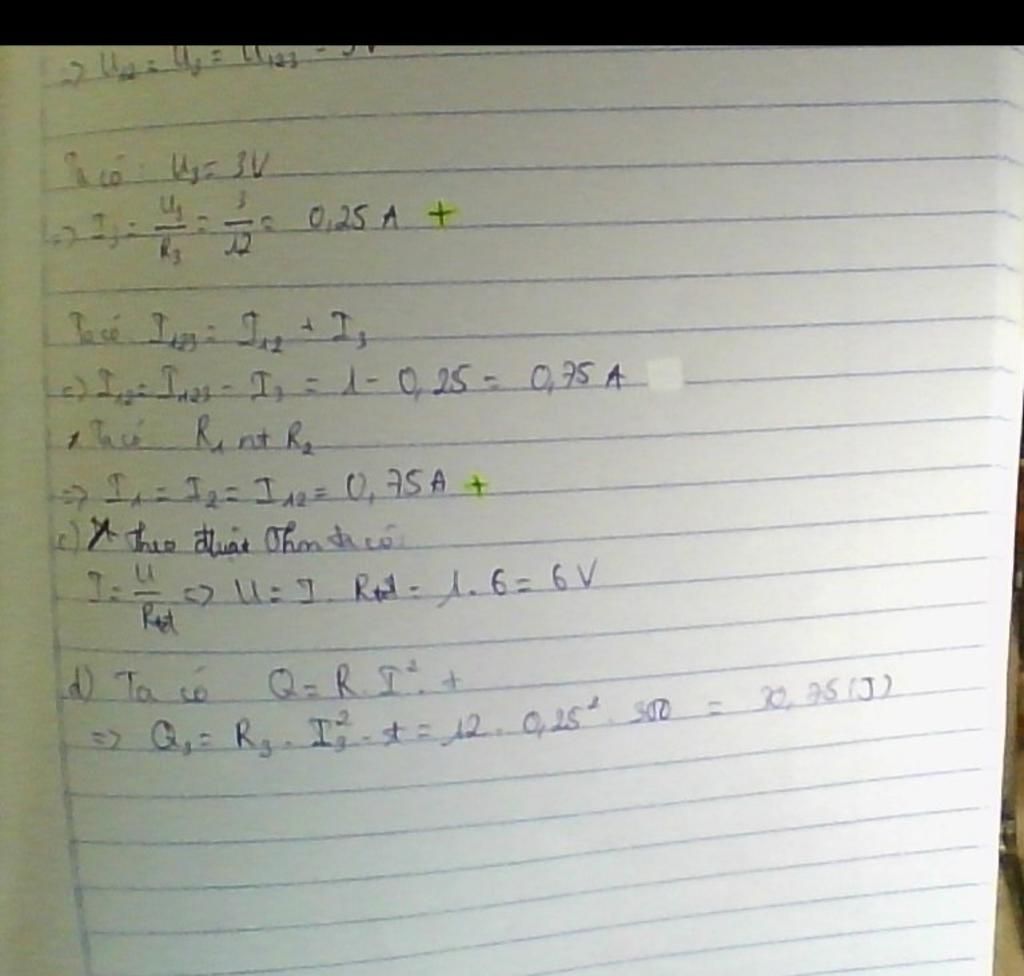 => U₁₂ = U₃ = U₁₂₃ = 3V
Ta có: U₃ = 3V
=> I₃ = U₃/R₃ = 3/12 = 0,25 A +
Ta có I₁₂₃ = I₁₂ + I₃
=> I₁₂ = I₁₂₃ - I₃ = 1 - 0,25 = 0,75 A
* Ta có R₁ nt R₂
=> I₁ = I₂ = I₁₂ = 0,75A +
c) theo Ohm ta có:
I = U/Rtđ => U = I. Rtđ = 1. 6 = 6 V
d) Ta có Q = R. I². t
=> Q₃ = R₃. I₃². t = 12. 0,25². = (J)